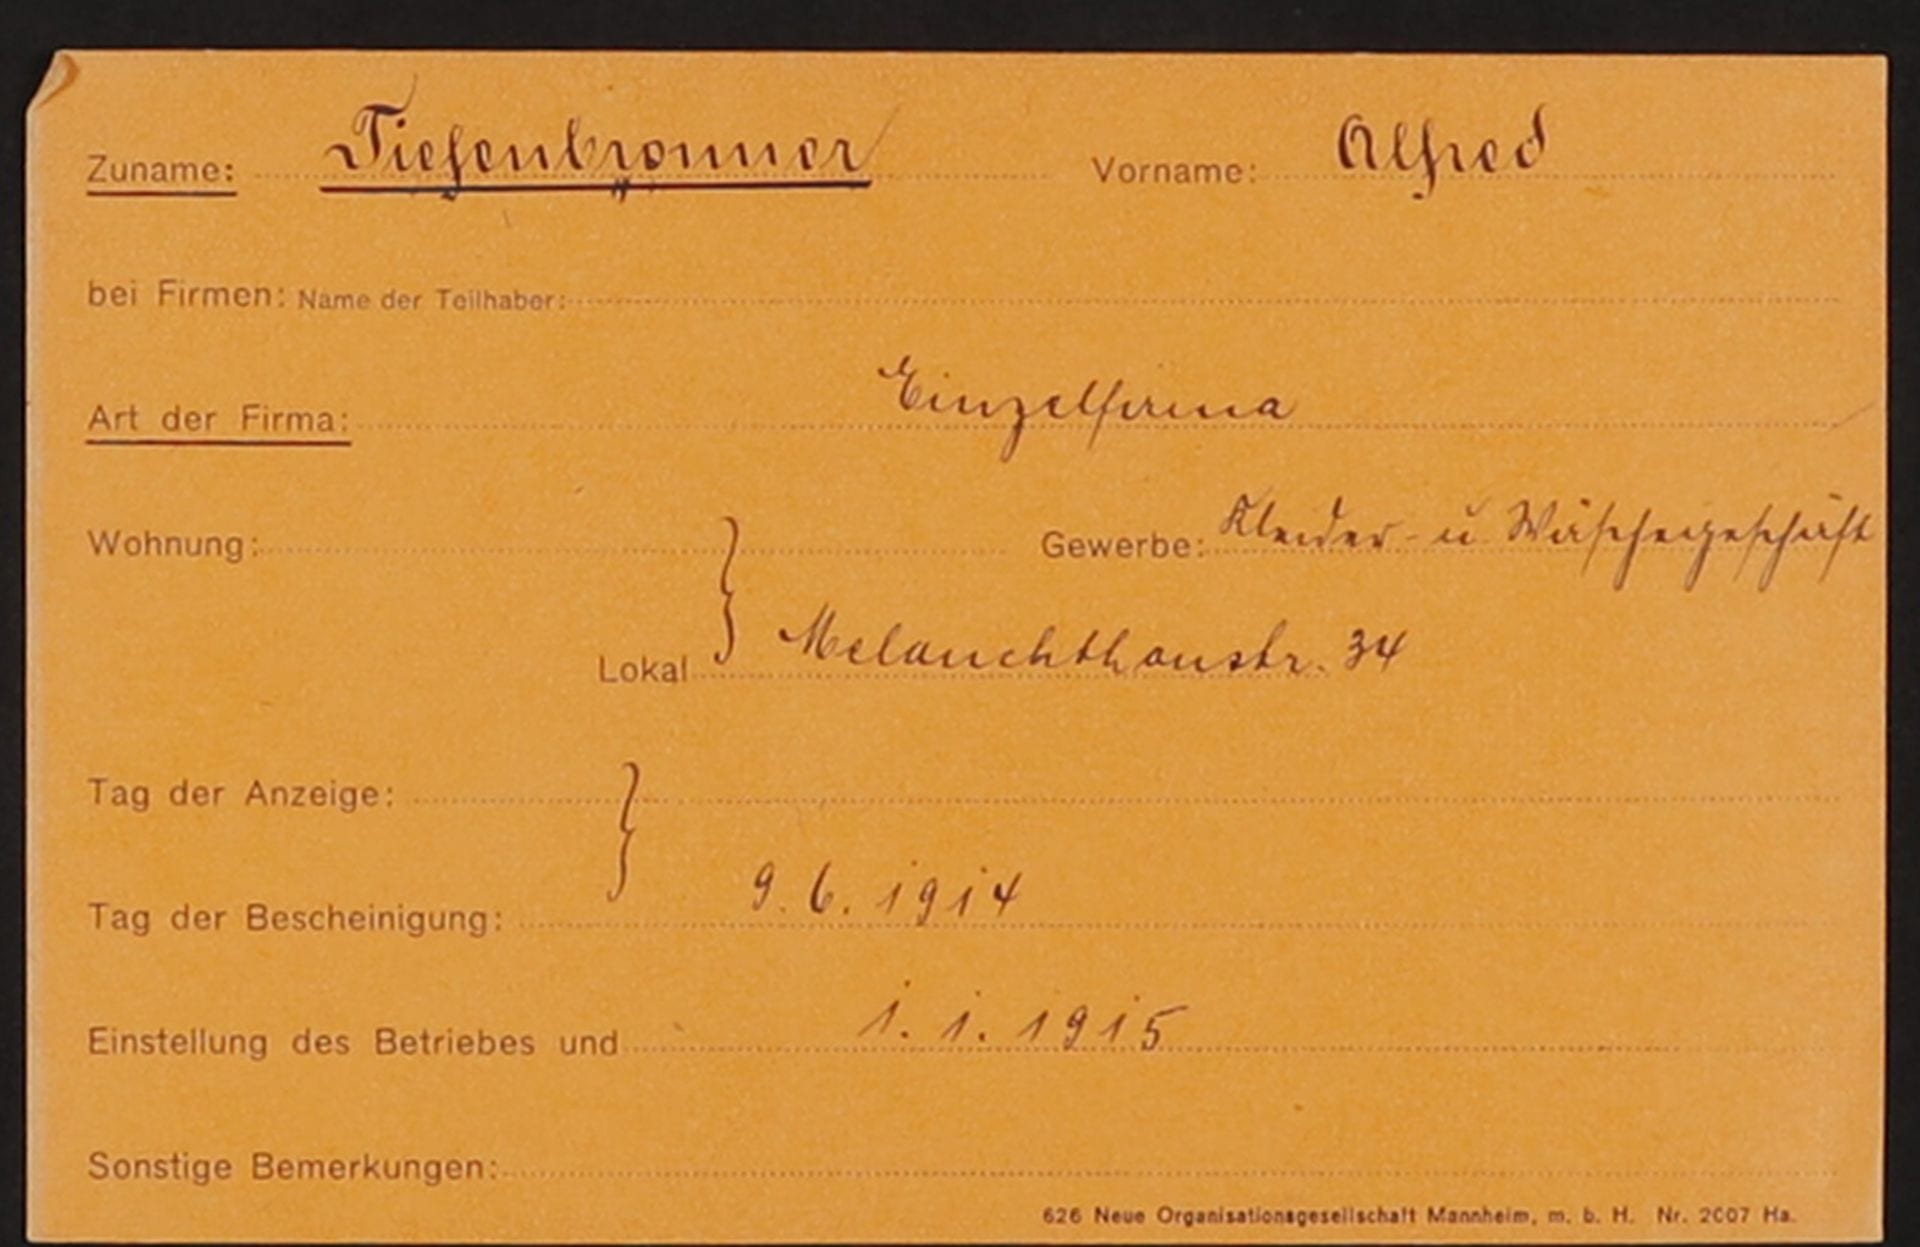 Zuname: Tiefenbronner Vorname: Alfred
bei Firmen: Name der Teilhaber:
Art der Firma: Einzelfirma
Wohnung: } Gewerbe: Kleider- u Wäschegeschäft
Lokal Melanchthonstr. 34
Tag der Anzeige: }
Tag der Bescheinigung: 9. 6. 1914
Einstellung des Betriebes und 1. 1. 1915
Sonstige Bemerkungen:
626 Neue Organisationsgesellschaft Mannheim, m. b. H. Nr. 2007 Ha.